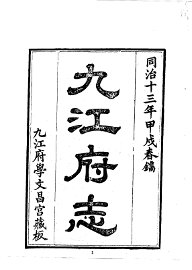 同治十三年甲戌春鐫
九江府志
九江府學文昌宮藏板